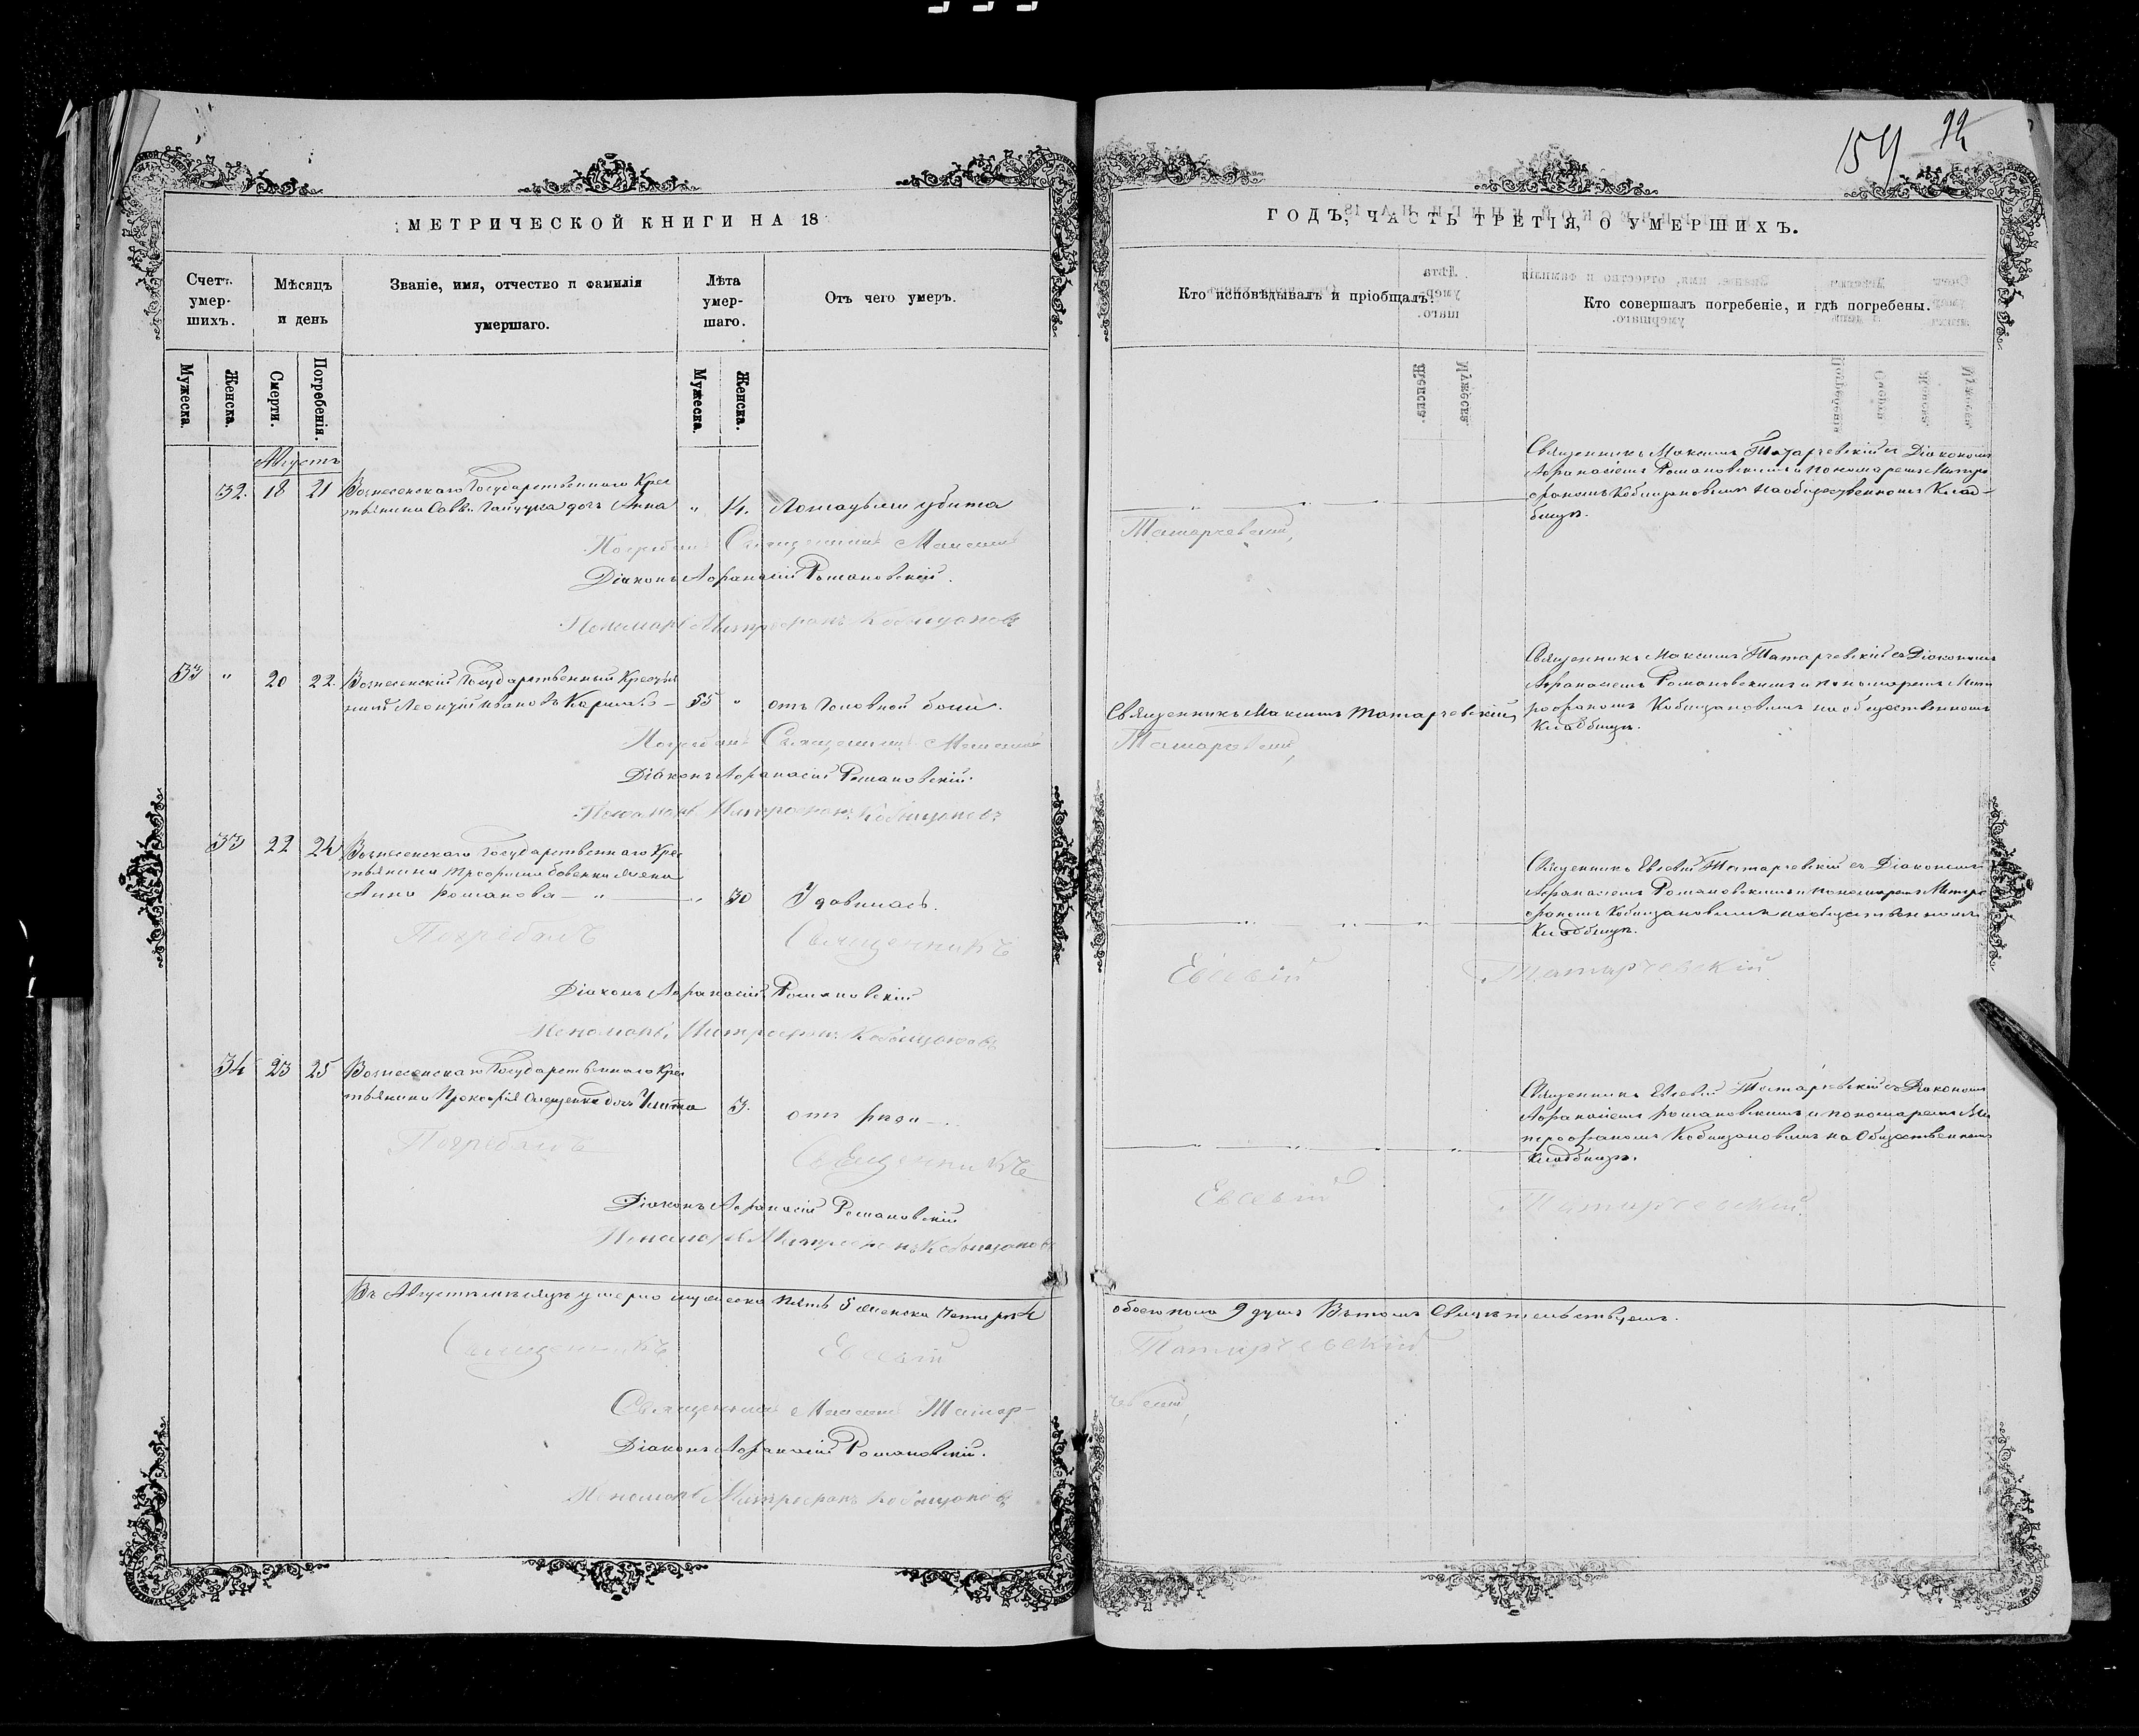 154 92
МЕТРИЧЕСКОЙ КНИГИ НА 18
ГОДЪ, ЧАСТЬ ТРЕТІЯ, О УМЕРШИХЪ.
Счетъ умер-шихъ.
Мѣсяцъ и день
Званіе, имя, отчество и фамилія умершаго.
Лѣта умер-шаго.
Отъ чего умеръ.
Кто исповѣдывалъ и пріобщалъ.
Кто совершалъ погребеніе, и гдѣ погребены.
Мужеска.
Женска.
Смерти.
Погребенія.
Мужеска.
Женска.
Августъ
32. 18 21 Вознесенскаго Государственнаго Крес
тьянина Саввы дочь Анна " 14. Лошадьми убита
Священникъ Максимъ Татарчевскій съ Діакономъ
Афанасіемъ Романовскимъ и пономаремъ Митро
фаномъ Кобищановымъ на общественномъ Клад-
бищѣ.
Погребалъ Священникъ Максимъ Татарчевскій,
Діаконъ Афанасій Романовскій.
Пономарь Митрофанъ Кобищановъ
33 " 20 22. Вознесенскій Государственный Крестья
нинъ Леонтій Ивановъ 55 " отъ Головной боли.
Священникъ Максимъ Татарчевскій
Священникъ Максимъ Татарчевскій съ Діакономъ
Афанасіемъ Романовскимъ и пономаремъ Мит
рофаномъ Кобищановымъ на общественномъ
Кладбищѣ.
Погребалъ Священникъ Максимъ Татарчевскій,
Діаконъ Афанасій Романовскій.
Пономарь Митрофанъ Кобищановъ
33 22 24 Вознесенскаго Государственнаго Крес
тьянина Трофима жена
Анна Романова — " — " 30 Удавилась.
Священникъ Евсевій Татарчевскій съ Діакономъ
Афанасіемъ Романовскимъ и пономаремъ Митро
фаномъ Кобищановымъ на общественномъ
Кладбищѣ.
Погребалъ Священникъ Евсевій Татарчевскій
Діаконъ Афанасій Романовскій
Пономарь Митрофанъ Кобищановъ
34 23 25 Вознесенскаго Государственнаго Крес
тьянина Прокофія дочь Улита 3. отъ
Священникъ Евсевій Татарчевскій съ Діакономъ
Афанасіемъ Романовскимъ и пономаремъ Ми
трофаномъ Кобищановымъ на Общественномъ
Кладбищѣ.
Погребалъ Священникъ Евсевій Татарчевскій
Діаконъ Афанасій Романовскій
Пономарь Митрофанъ Кобищановъ
Въ Августѣ мѣсяцѣ умерло мужеска пять 5 женска четыре 4 обоего пола 9 душъ Въ томъ Свидѣтельствуемъ.
Священникъ Евсевій Татарчевскій
Священникъ Максимъ Татар-чевскій,
Діаконъ Афанасій Романовскій.
Пономарь Митрофанъ Кобищановъ